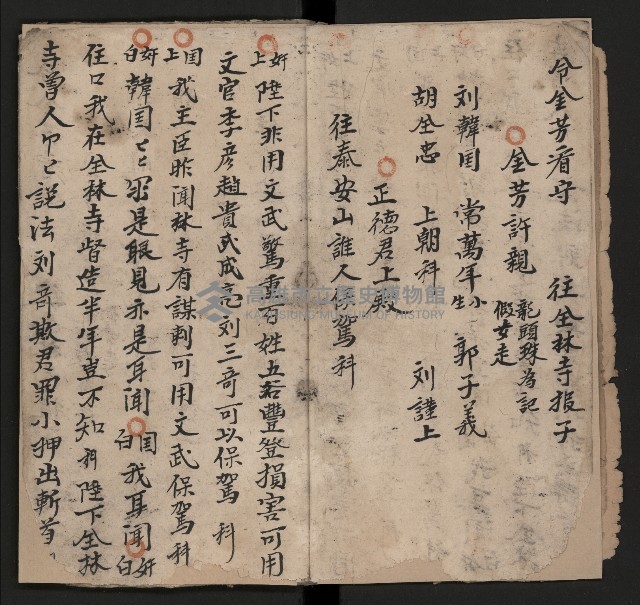 令全芳看守　往全林寺报子
全芳許親　龍頭珠為記
假女走
刘韓国　常萬年 小生　郭子義
胡全忠　上朝科　刘謹上
正德君上殿
往泰安山誰人保駕科
奸上 陛下非用文武驚動百姓五谷豐登損害可用
文官李彦趙貴武成亮刘三奇可以保駕　科
国上 我主臣昨聞林寺有謀刺可用文武保駕科
奸白 韓国ヒヒ 你是眼見亦是耳聞　国白 我耳聞 奸白
住口我在全林寺督造半年豈不知 科 陛下全林
寺曽人卩已説法刘奇欺君罪小押出斬首
高雄市立歷史博物館
KAOHSIUNG MUSEUM OF HISTORY